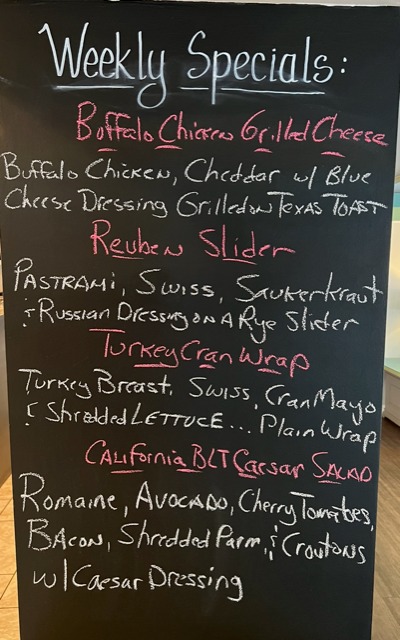 Weekly Specials:
Buffalo Chicken Grilled Cheese
Buffalo Chicken, Cheddar w/ Blue
Cheese Dressing Grilled on Texas TOAST
Reuben Slider
PASTRAMi, Swiss, Saukerkraut
& Russian Dressing on A Rye Slider
Turkey Cran Wrap
Turkey Breast, Swiss, Cran Mayo
& Shredded LETTUCE... Plain Wrap
CALiforniA BLT Caesar SALAD
Romaine, AVOCADO, Cherry Tomatoes,
BAcon, Shredded Parm, & Croutons
w/ Caesar Dressing